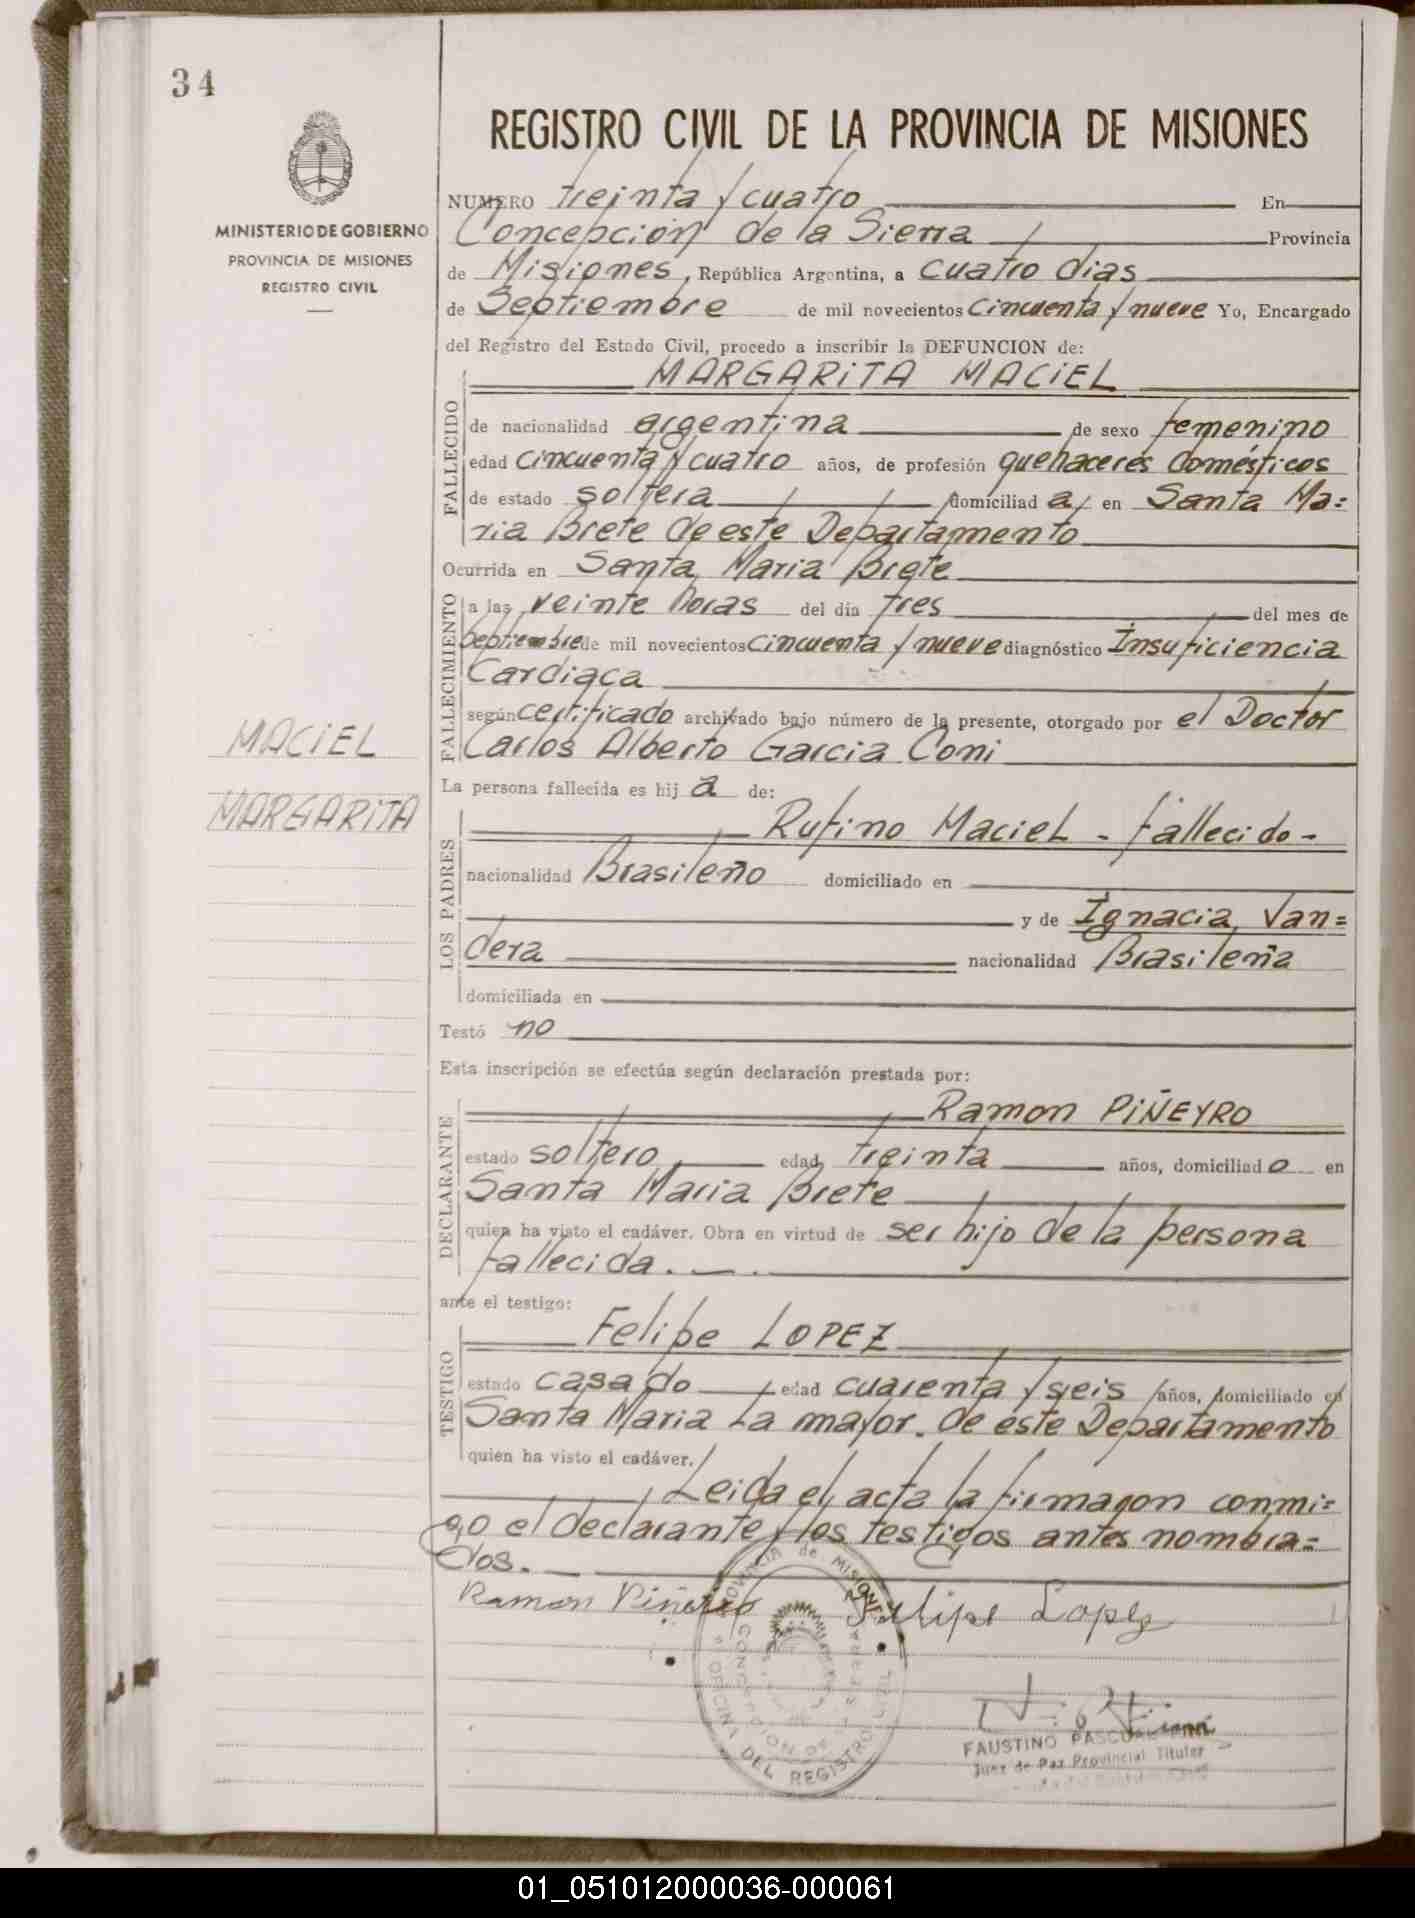 34
MINISTERIO DE GOBIERNO
PROVINCIA DE MISIONES
REGISTRO CIVIL
MACIEL
MARGARITA
REGISTRO CIVIL DE LA PROVINCIA DE MISIONES
NUMERO treinta y cuatro En
Concepcion de la Sierra Provincia
de Misiones, República Argentina, a cuatro dias
de Septiembre de mil novecientos cincuenta y nueve Yo, Encargado
del Registro del Estado Civil, procedo a inscribir la DEFUNCION de:
MARGARITA MACIEL
FALLECIDO
de nacionalidad argentina de sexo femenino
edad cincuenta y cuatro años, de profesión quehaceres domésticos
de estado soltera domiciliad a en Santa Ma=
ria Brete de este Departamento
Ocurrida en Santa Maria Brete
FALLECIMIENTO
a las veinte horas del día tres del mes de
Septiembre de mil novecientos cincuenta y nueve diagnóstico Insuficiencia
Cardiaca
según certificado archivado bajo número de la presente, otorgado por el Doctor
Carlos Alberto Garcia Coni
La persona fallecida es hij a de:
LOS PADRES
Rufino Maciel - fallecido -
nacionalidad Brasileño domiciliado en
y de Ignacia Van=
dera nacionalidad Brasileña
domiciliada en
Testó no
Esta inscripción se efectúa según declaración prestada por:
DECLARANTE
Ramon PIÑEYRO
estado soltero edad treinta años, domiciliad o en
Santa Maria Brete
quien ha visto el cadáver. Obra en virtud de ser hijo de la persona
fallecida.
ante el testigo:
TESTIGO
Felipe LOPEZ
estado casado edad cuarenta y seis años, domiciliado en
Santa Maria La mayor. de este Departamento
quien ha visto el cadáver.
Leida el acta la firmaron conmi=
go el declarante y los testigos antes nombra=
dos.
Ramon Piñeiro Felipe Lopez
PROVINCIA de MISIONES
CONCEPCION DE LA SIERRA
OFICINA DEL REGISTRO CIVIL
FAUSTINO PASCUAL
Juez de Paz Provincial Titular
01_051012000036-000061